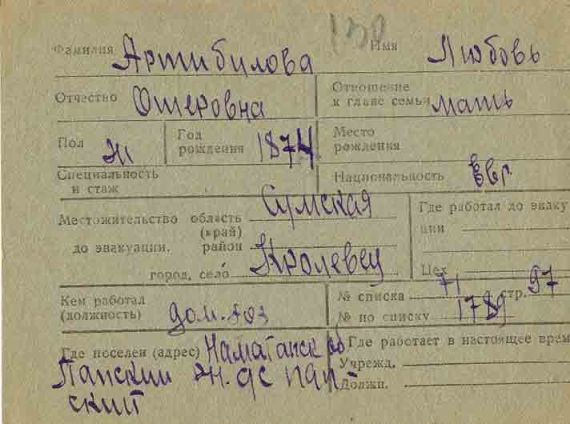 130
Фамилия Артибилова Имя Любовь
Отчество Ошеровна Отношение к главе семьи мать
Пол Ж Год рождения 1874 Место рождения
Специальность и стаж Национальность евр.
Местожительство область (край) Сумская Где работал до эваку
до эвакуации, район ции
город, село Кролевец Цех
Кем работал (должность) дом. хоз № списка 71 стр. 97
№ по списку 1789
Где поселен (адрес) Наматанск Где работает в настоящее врем
Папский Учрежд.
ский Должн.